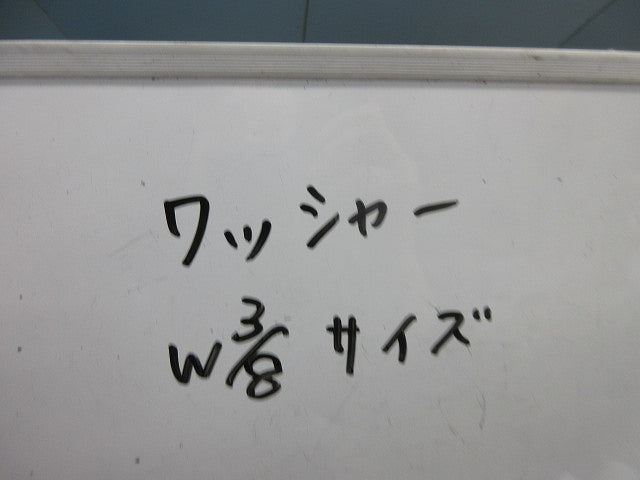 ワッシャー
W3/8 サイズ